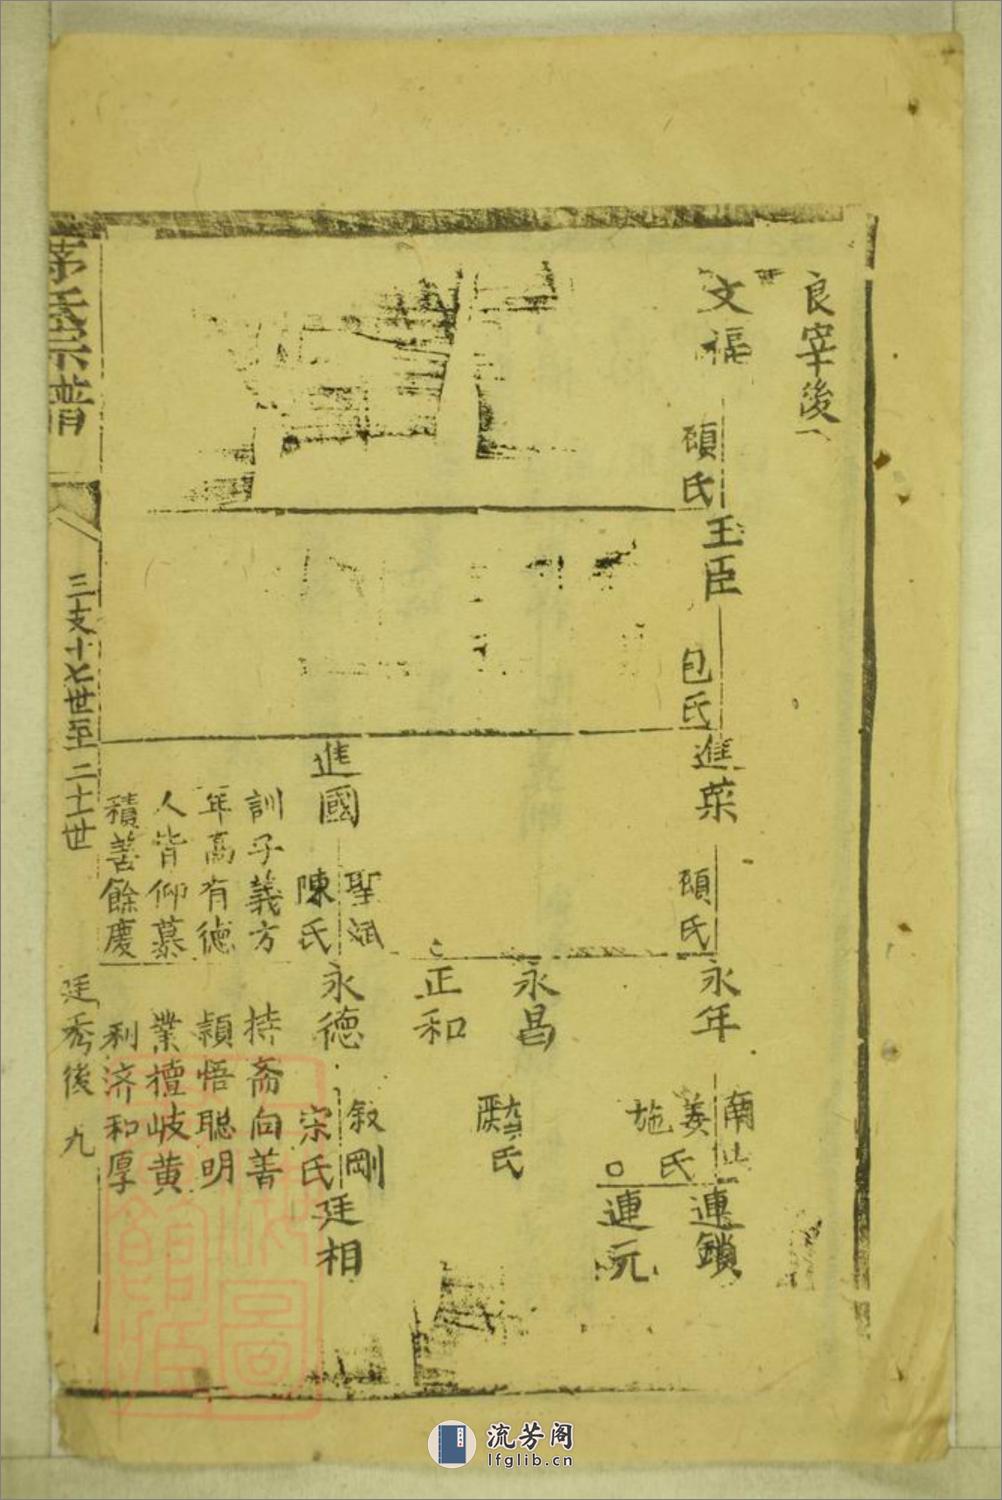 良宰後一
文福
顧氏
玉臣
包氏
進菜
顧氏
永年
蘭山
姜氏
施
連鎖
連元
永昌
殿九氏
正和
進國
聖斌
陳氏
永德
叙剛
宗氏
廷相
訓子義方
持斋向善
年高有德
穎悟聪明
人皆仰慕
業擅岐黄
積善餘慶
利济和厚
茅氏宗譜
三支十七世至二十一世
廷秀後 九
流芳阁
lfglib.cn